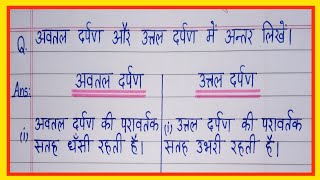 Q. अवतल दर्पण और उत्तल दर्पण में अन्तर लिखें।
Ans: अवतल दर्पण उत्तल दर्पण
(i) अवतल दर्पण की परावर्तक (i) उत्तल दर्पण की परावर्तक
सतह धँसी रहती है। सतह उभरी रहती है।